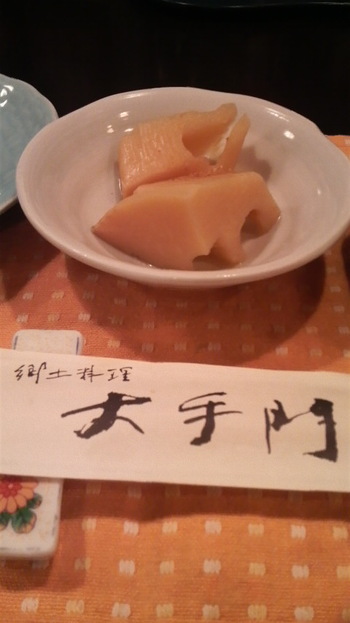 郷土料理
大手門